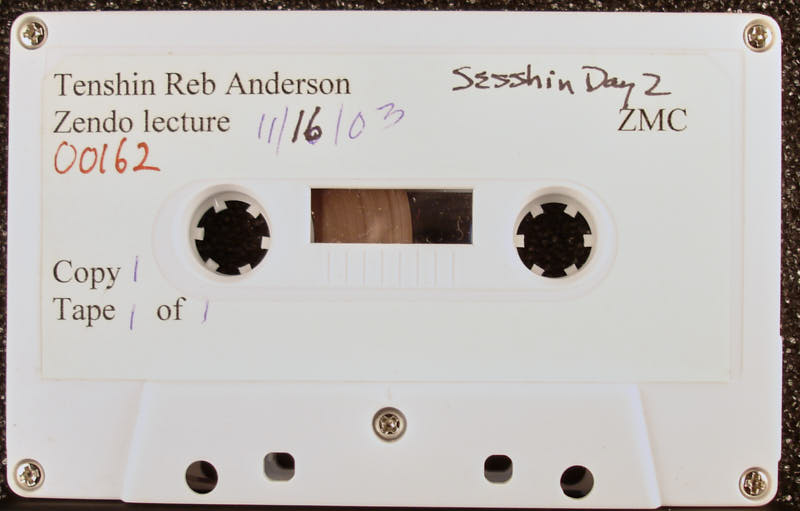 Tenshin Reb Anderson Sesshin Day 2
Zendo lecture 11/16/03 ZMC
00162
Copy 1
Tape 1 of 1